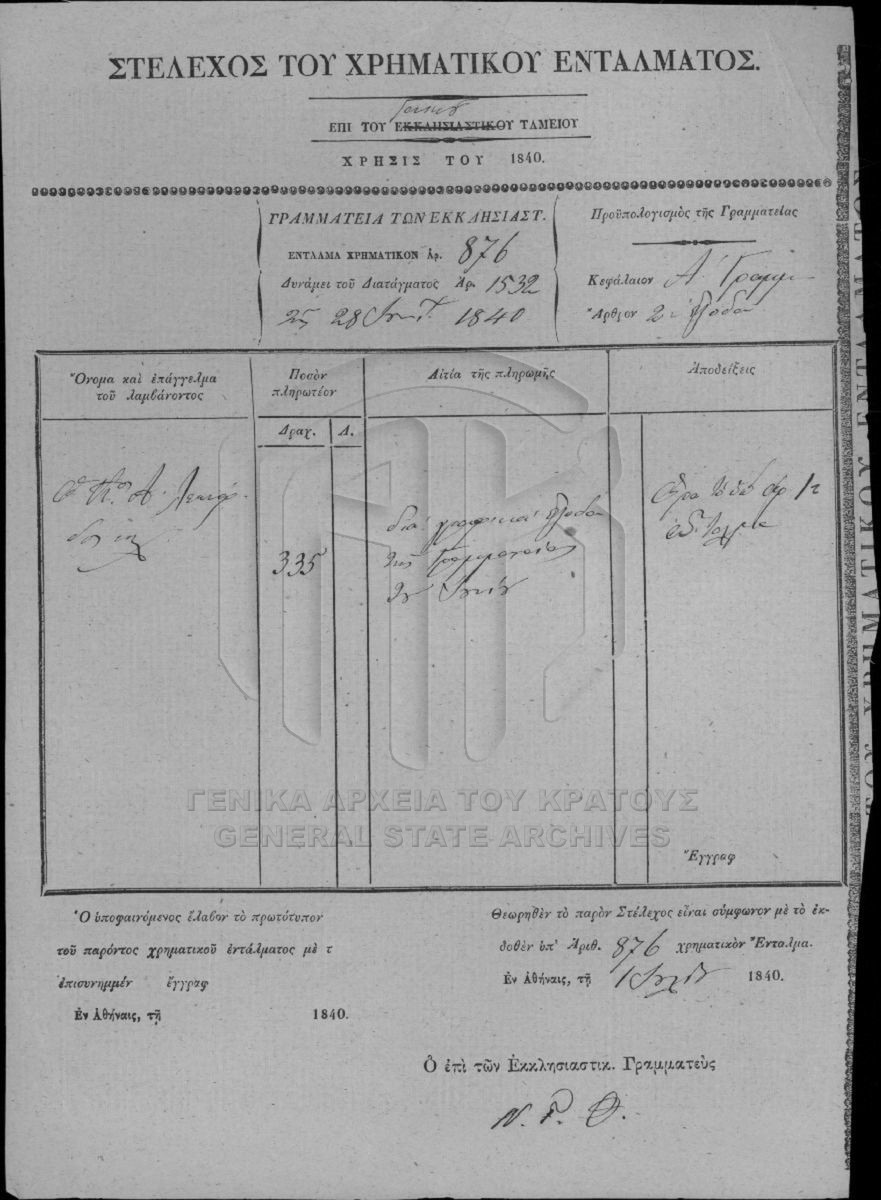 ΣΤΕΛΕΧΟΣ ΤΟΥ ΧΡΗΜΑΤΙΚΟΥ ΕΝΤΑΛΜΑΤΟΣ.
ΕΠΙ ΤΟΥ ΕΚΚΛΗΣΙΑΣΤΙΚΟΥ ΤΑΜΕΙΟΥ
ΧΡΗΣΙΣ ΤΟΥ 1840.
ΓΡΑΜΜΑΤΕΙΑ ΤΩΝ ΕΚΚΛΗΣΙΑΣΤ.
ΕΝΤΑΛΜΑ ΧΡΗΜΑΤΙΚΟΝ Ἀρ. 876
Δυνάμει τοῦ Διατάγματος Ἀρ. 1532
28 1840
Προϋπολογισμὸς τῆς Γραμματείας
Κεφάλαιον Α΄ Γραμμ
Ἄρθρον 2 ἔξοδα
Ὄνομα καὶ ἐπάγγελμα
τοῦ λαμβάνοντος
Ποσὸν
πληρωτέον
Αἰτία τῆς πληρωμῆς
Ἀποδείξεις
Δραχ. Λ.
335
διὰ γραφικὰ ἔξοδα
τῆς Γραμματείας
Ἔγγραφ
Ὁ ὑποφαινόμενος ἔλαβον τὸ πρωτότυπον
τοῦ παρόντος χρηματικοῦ ἐντάλματος μὲ τ
ἐπισυνημμέν ἔγγραφ
Ἐν Ἀθήναις, τῇ 1840.
Θεωρηθὲν τὸ παρὸν Στέλεχος εἶναι σύμφωνον μὲ τὸ ἐκ-
δοθὲν ὑπ' Ἀριθ. 876 χρηματικὸν Ἔνταλμα.
Ἐν Ἀθήναις, τῇ 1 1840.
Ὁ ἐπὶ τῶν Ἐκκλησιαστικ. Γραμματεὺς
Ν. Γ. Θ.
ΓΕΝΙΚΑ ΑΡΧΕΙΑ ΤΟΥ ΚΡΑΤΟΥΣ
GENERAL STATE ARCHIVES
ΤΟΥ ΧΡΗΜΑΤΙΚΟΥ ΕΝΤΑΛΜΑΤΟΣ